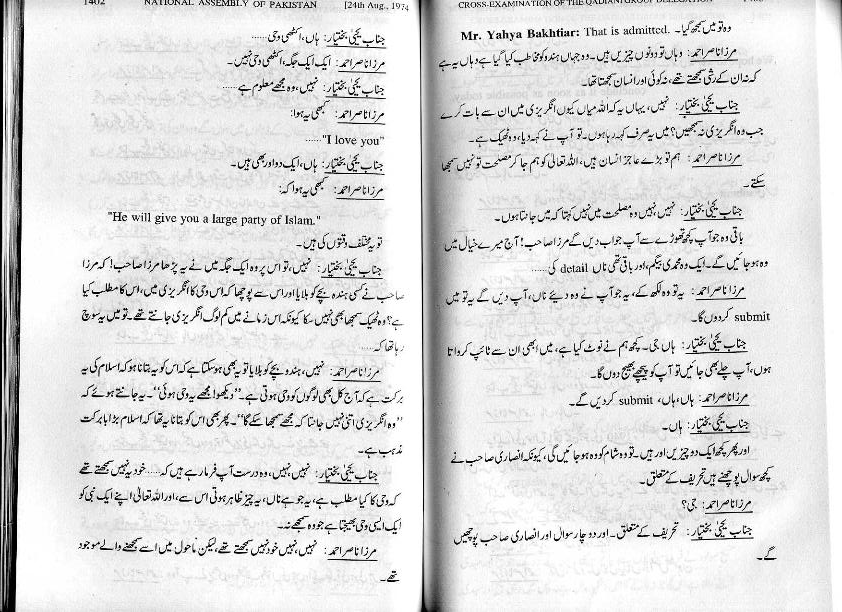 1402 NATIONAL ASSEMBLY OF PAKISTAN [24th Aug., 1974
جناب یحییٰ بختیار: ہاں، اکٹھی وحی......
مرزا ناصر احمد: ایک ایک جگہ، اکٹھی وحی نہیں۔
جناب یحییٰ بختیار: نہیں، وہ مجھے معلوم ہے......
مرزا ناصر احمد: کبھی یہ ہوا:
"I love you"......
جناب یحییٰ بختیار: ہاں، ایک دو اور بھی ہیں۔
مرزا ناصر احمد: کبھی یہ ہوا کہ:
"He will give you a large party of Islam."
تو یہ مختلف وقتوں کی ہیں۔
جناب یحییٰ بختیار: نہیں، تو اس پر وہ ایک جگہ میں نے یہ پڑھا مرزا صاحب! کہ مرزا
صاحب نے کسی ہندو بچے کو بلایا اور اس سے پوچھا کہ اس وحی کا انگریزی میں، اس کا مطلب کیا
ہے؟ وہ ٹھیک سمجھا بھی نہیں سکا کیونکہ اس زمانے میں کم لوگ انگریزی جانتے تھے۔ تو میں یہ سوچ
رہا تھا کہ......
مرزا ناصر احمد: نہیں، ہندو بچے کو بلایا تو یہ بھی ہوسکتا ہے کہ اس کو یہ بتانا ہو کہ اسلام کی یہ
برکت ہے کہ آج کل بھی لوگوں کو وحی ہوتی ہے۔ ”دیکھو! مجھے یہ وحی ہوئی“۔ یہ جانتے ہوئے کہ
”وہ انگریزی اتنی نہیں جانتا کہ مجھے سمجھا سکے گا“۔ پھر بھی اس کو بتانا یہ تھا کہ اسلام بڑا بابرکت
مذہب ہے۔
جناب یحییٰ بختیار: نہیں، نہیں، وہ درست آپ فرما رہے ہیں کہ...... خود یہ نہیں سمجھتے تھے
کہ وحی کا کیا مطلب ہے، یہ جو ہے ناں، یہ چیز ظاہر ہوتی اس سے، اور اللہ تعالیٰ اپنے ایک نبی کو
ایک ایسی وحی بھیجتا ہے جو وہ سمجھے نہ۔
مرزا ناصر احمد: نہیں، نہیں خود نہیں سمجھتے تھے، لیکن ماحول میں اسے سمجھنے والے موجود
تھے۔
CROSS-EXAMINATION OF THE QADIANI GROUP DELEGATION
وہ تو میں سمجھ گیا۔ Mr. Yahya Bakhtiar: That is admitted.
مرزا ناصر احمد: وہاں تو دونوں چیزیں ہیں۔ وہ جہاں ہندو کو مخاطب کیا گیا ہے وہاں یہ ہے
کہ نہ ان کے رشی سمجھتے تھے، نہ کوئی اور انسان سمجھتا تھا۔
جناب یحییٰ بختیار: نہیں، یہاں یہ کہ اللہ میاں کیوں انگریزی میں ان سے بات کرے
جب وہ انگریزی نہ سمجھیں؟ میں یہ صرف کہہ رہا ہوں۔ تو آپ نے کہہ دیا، وہ ٹھیک ہے۔
مرزا ناصر احمد: ہم تو بڑے عاجز انسان ہیں، اللہ تعالیٰ کو ہم جا کر مصلحت تو نہیں سمجھا
سکتے۔
جناب یحییٰ بختیار: نہیں، نہیں وہ مصلحت میں نہیں کہتا کہ میں جانتا ہوں۔
باقی وہ جو آپ کچھ تھوڑے سے آپ جواب دیں گے مرزا صاحب! آج میرے خیال میں
وہ ہوجائیں گے۔ ایک وہ محمدی بیگم، اور باقی تھی ناں detail کی......
مرزا ناصر احمد: یہ تو وہ لکھ کے، یہ جو آپ نے وہ دیئے ناں، آپ دیں گے یہ تو میں
submit کردوں گا۔
جناب یحییٰ بختیار: ہاں جی۔ کچھ ہم نے نوٹ کیا ہے، میں ابھی ان سے ٹائپ کرواتا
ہوں، آپ چلے بھی جائیں تو آپ کو پیچھے بھیج دوں گا۔
مرزا ناصر احمد: ہاں، ہاں، submit کردیں گے۔
جناب یحییٰ بختیار: ہاں۔
اور پھر کچھ ایک دو چیزیں اور ہیں۔ تو وہ شام کو وہ ہوجائیں گی، کیونکہ انصاری صاحب نے
کچھ سوال پوچھنے ہیں تحریف کے متعلق۔
مرزا ناصر احمد: جی؟
جناب یحییٰ بختیار: تحریف کے متعلق۔ اور دو چار سوال اور انصاری صاحب پوچھیں
گے۔